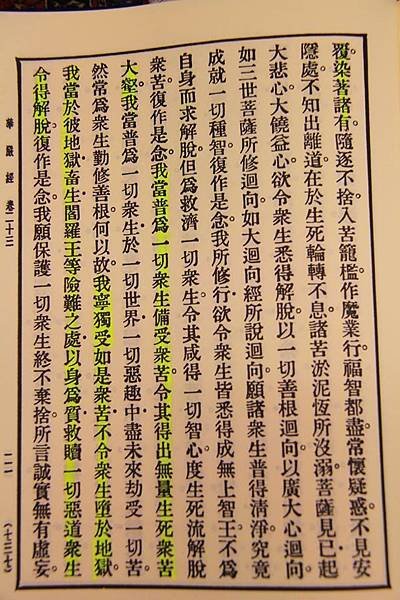 覆染著諸有。隨逐不捨。入苦籠檻。作魔業行。福智都盡。常懷疑惑。不見安
隱處。不知出離道。在於生死輪轉不息。諸苦淤泥恆所沒溺。菩薩見已。起
大悲心大饒益心。欲令衆生悉得解脫。以一切善根迴向。以廣大心迴向。
如三世菩薩所修迴向。如大迴向經所說迴向。願諸衆生普得清淨。究竟
成就一切種智。復作是念。我所修行。欲令衆生皆悉得成無上智王。不爲
自身而求解脫。但爲救濟一切衆生。令其咸得一切智心。度生死流。解脫
衆苦。復作是念。我當普爲一切衆生備受衆苦。令其得出無量生死衆苦
大壑。我當普爲一切衆生。於一切世界一切惡趣中。盡未來劫受一切苦。
然常爲衆生勤修善根。何以故。我寧獨受如是衆苦。不令衆生墮於地獄。
我當於彼地獄畜生閻羅王等險難之處。以身爲質。救贖一切惡道衆生。
令得解脫。復作是念。我願保護一切衆生。終不棄捨。所言誠實。無有虛妄。
華嚴經卷二十三
二一一
(七三七)